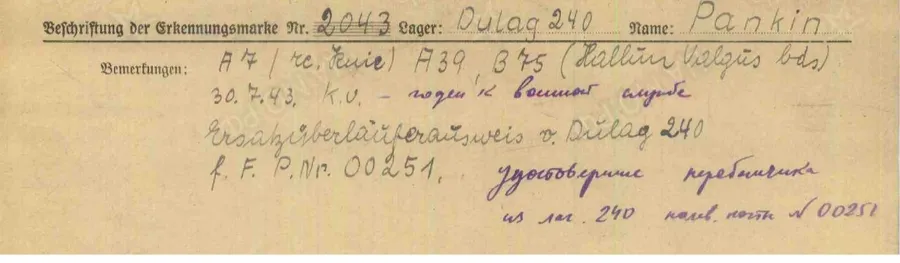 Beschriftung der Erkennungsmarke Nr. 2043 Lager: Dulag 240 Name: Pankin
Bemerkungen: A 7 / rc. Knie) A39, B 75 (Hallux Valgus bds)
30.7.43. K.V. – годен к военной службе
Ersatzüberläuferausweis v. Dulag 240
f. F. P. Nr. 00251. удостоверение перебежчика
из лаг. 240 полев. почты N 00251